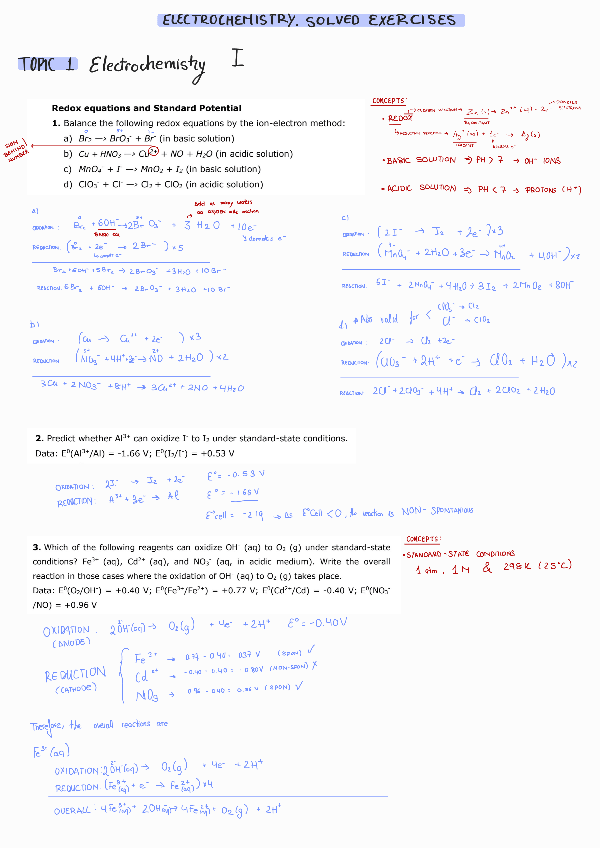 ELECTROCHEMISTRY. SOLVED EXERCISES
TOPIC 1 Electrochemistry I
Redox equations and Standard Potential
1. Balance the following redox equations by the ion-electron method:
a) Br₂ —> BrO₃⁻ + Br⁻ (in basic solution)
b) Cu + HNO₃ —> Cu²⁺ + NO + H₂O (in acidic solution)
c) MnO₄⁻ + I⁻ —> MnO₂ + I₂ (in basic solution)
d) ClO₃⁻ + Cl⁻ —> Cl₂ + ClO₂ (in acidic solution)
SIGN BEHIND NUMBER
CONCEPTS:
• REDOX
• BASIC SOLUTION ⇒ PH > 7 → OH⁻ IONS
• ACIDIC SOLUTION ⇒ PH < 7 → PROTONS (H⁺)
a)
Add as many waters
OXIDATION: Br₂ + 6OH⁻ → 2BrO₃⁻ + 3H₂O + 10e⁻
REDUCTION: (Br₂ + 2e⁻ → 2Br⁻) × 5
Br₂ + 6OH⁻ + 5Br₂ → 2BrO₃⁻ + 3H₂O + 10Br⁻
REACTION: 6Br₂ + 6OH⁻ → 2BrO₃⁻ + 3H₂O + 10Br⁻
b)
OXIDATION: (Cu → Cu²⁺ + 2e⁻) × 3
REDUCTION: (NO₃⁻ + 4H⁺ + 3e⁻ → NO + 2H₂O) × 2
3Cu + 2NO₃⁻ + 8H⁺ → 3Cu²⁺ + 2NO + 4H₂O
c)
OXIDATION: (2I⁻ → I₂ + 2e⁻) × 3
REDUCTION: (MnO₄⁻ + 2H₂O + 3e⁻ → MnO₂ + 4OH⁻) × 2
REACTION: 6I⁻ + 2MnO₄⁻ + 4H₂O → 3I₂ + 2MnO₂ + 8OH⁻
d) * Also valid for < ClO₃⁻ → Cl₂
Cl⁻ → ClO₂
OXIDATION: 2Cl⁻ → Cl₂ + 2e⁻
REDUCTION: (ClO₃⁻ + 2H⁺ + e⁻ → ClO₂ + H₂O) × 2
REACTION: 2Cl⁻ + 2ClO₃⁻ + 4H⁺ → Cl₂ + 2ClO₂ + 2H₂O
2. Predict whether Al³⁺ can oxidize I⁻ to I₂ under standard-state conditions.
Data: E⁰(Al³⁺/Al) = -1.66 V; E⁰(I₂/I⁻) = +0.53 V
OXIDATION: 2I⁻ → I₂ + 2e⁻ E° = -0.53 V
REDUCTION: Al³⁺ + 3e⁻ → Al E° = -1.66 V
E°cell = -2.19 → As E°Cell < 0, the reaction is NON-SPONTANEOUS
3. Which of the following reagents can oxidize OH⁻ (aq) to O₂ (g) under standard-state
conditions? Fe³⁺ (aq), Cd²⁺ (aq), and NO₃⁻ (aq, in acidic medium). Write the overall
reaction in those cases where the oxidation of OH⁻ (aq) to O₂ (g) takes place.
Data: E⁰(O₂/OH⁻) = +0.40 V; E⁰(Fe³⁺/Fe²⁺) = +0.77 V; E⁰(Cd²⁺/Cd) = -0.40 V; E⁰(NO₃⁻
/NO) = +0.96 V
CONCEPTS:
• STANDARD-STATE CONDITIONS
1 atm, 1M & 298K (25°C)
OXIDATION: 2OH⁻(aq) → O₂(g) + 4e⁻ + 2H⁺ E° = -0.40V
(ANODE)
REDUCTION
(CATHODE)
Fe³⁺ → 0.77 - 0.40 = 0.37 V (SPON) ✓
Cd²⁺ → -0.40 - 0.40 = -0.80V (NON-SPON) ✗
NO₃ → 0.96 - 0.40 = 0.56 V (SPON) ✓
Therefore, the overall reactions are
Fe³⁺(aq)
OXIDATION: 2OH⁻(aq) → O₂(g) + 4e⁻ + 2H⁺
REDUCTION: (Fe³⁺(aq) + e⁻ → Fe²⁺(aq)) × 4
OVERALL: 4Fe³⁺(aq) + 2OH⁻(aq) → 4Fe²⁺(aq) + O₂(g) + 2H⁺